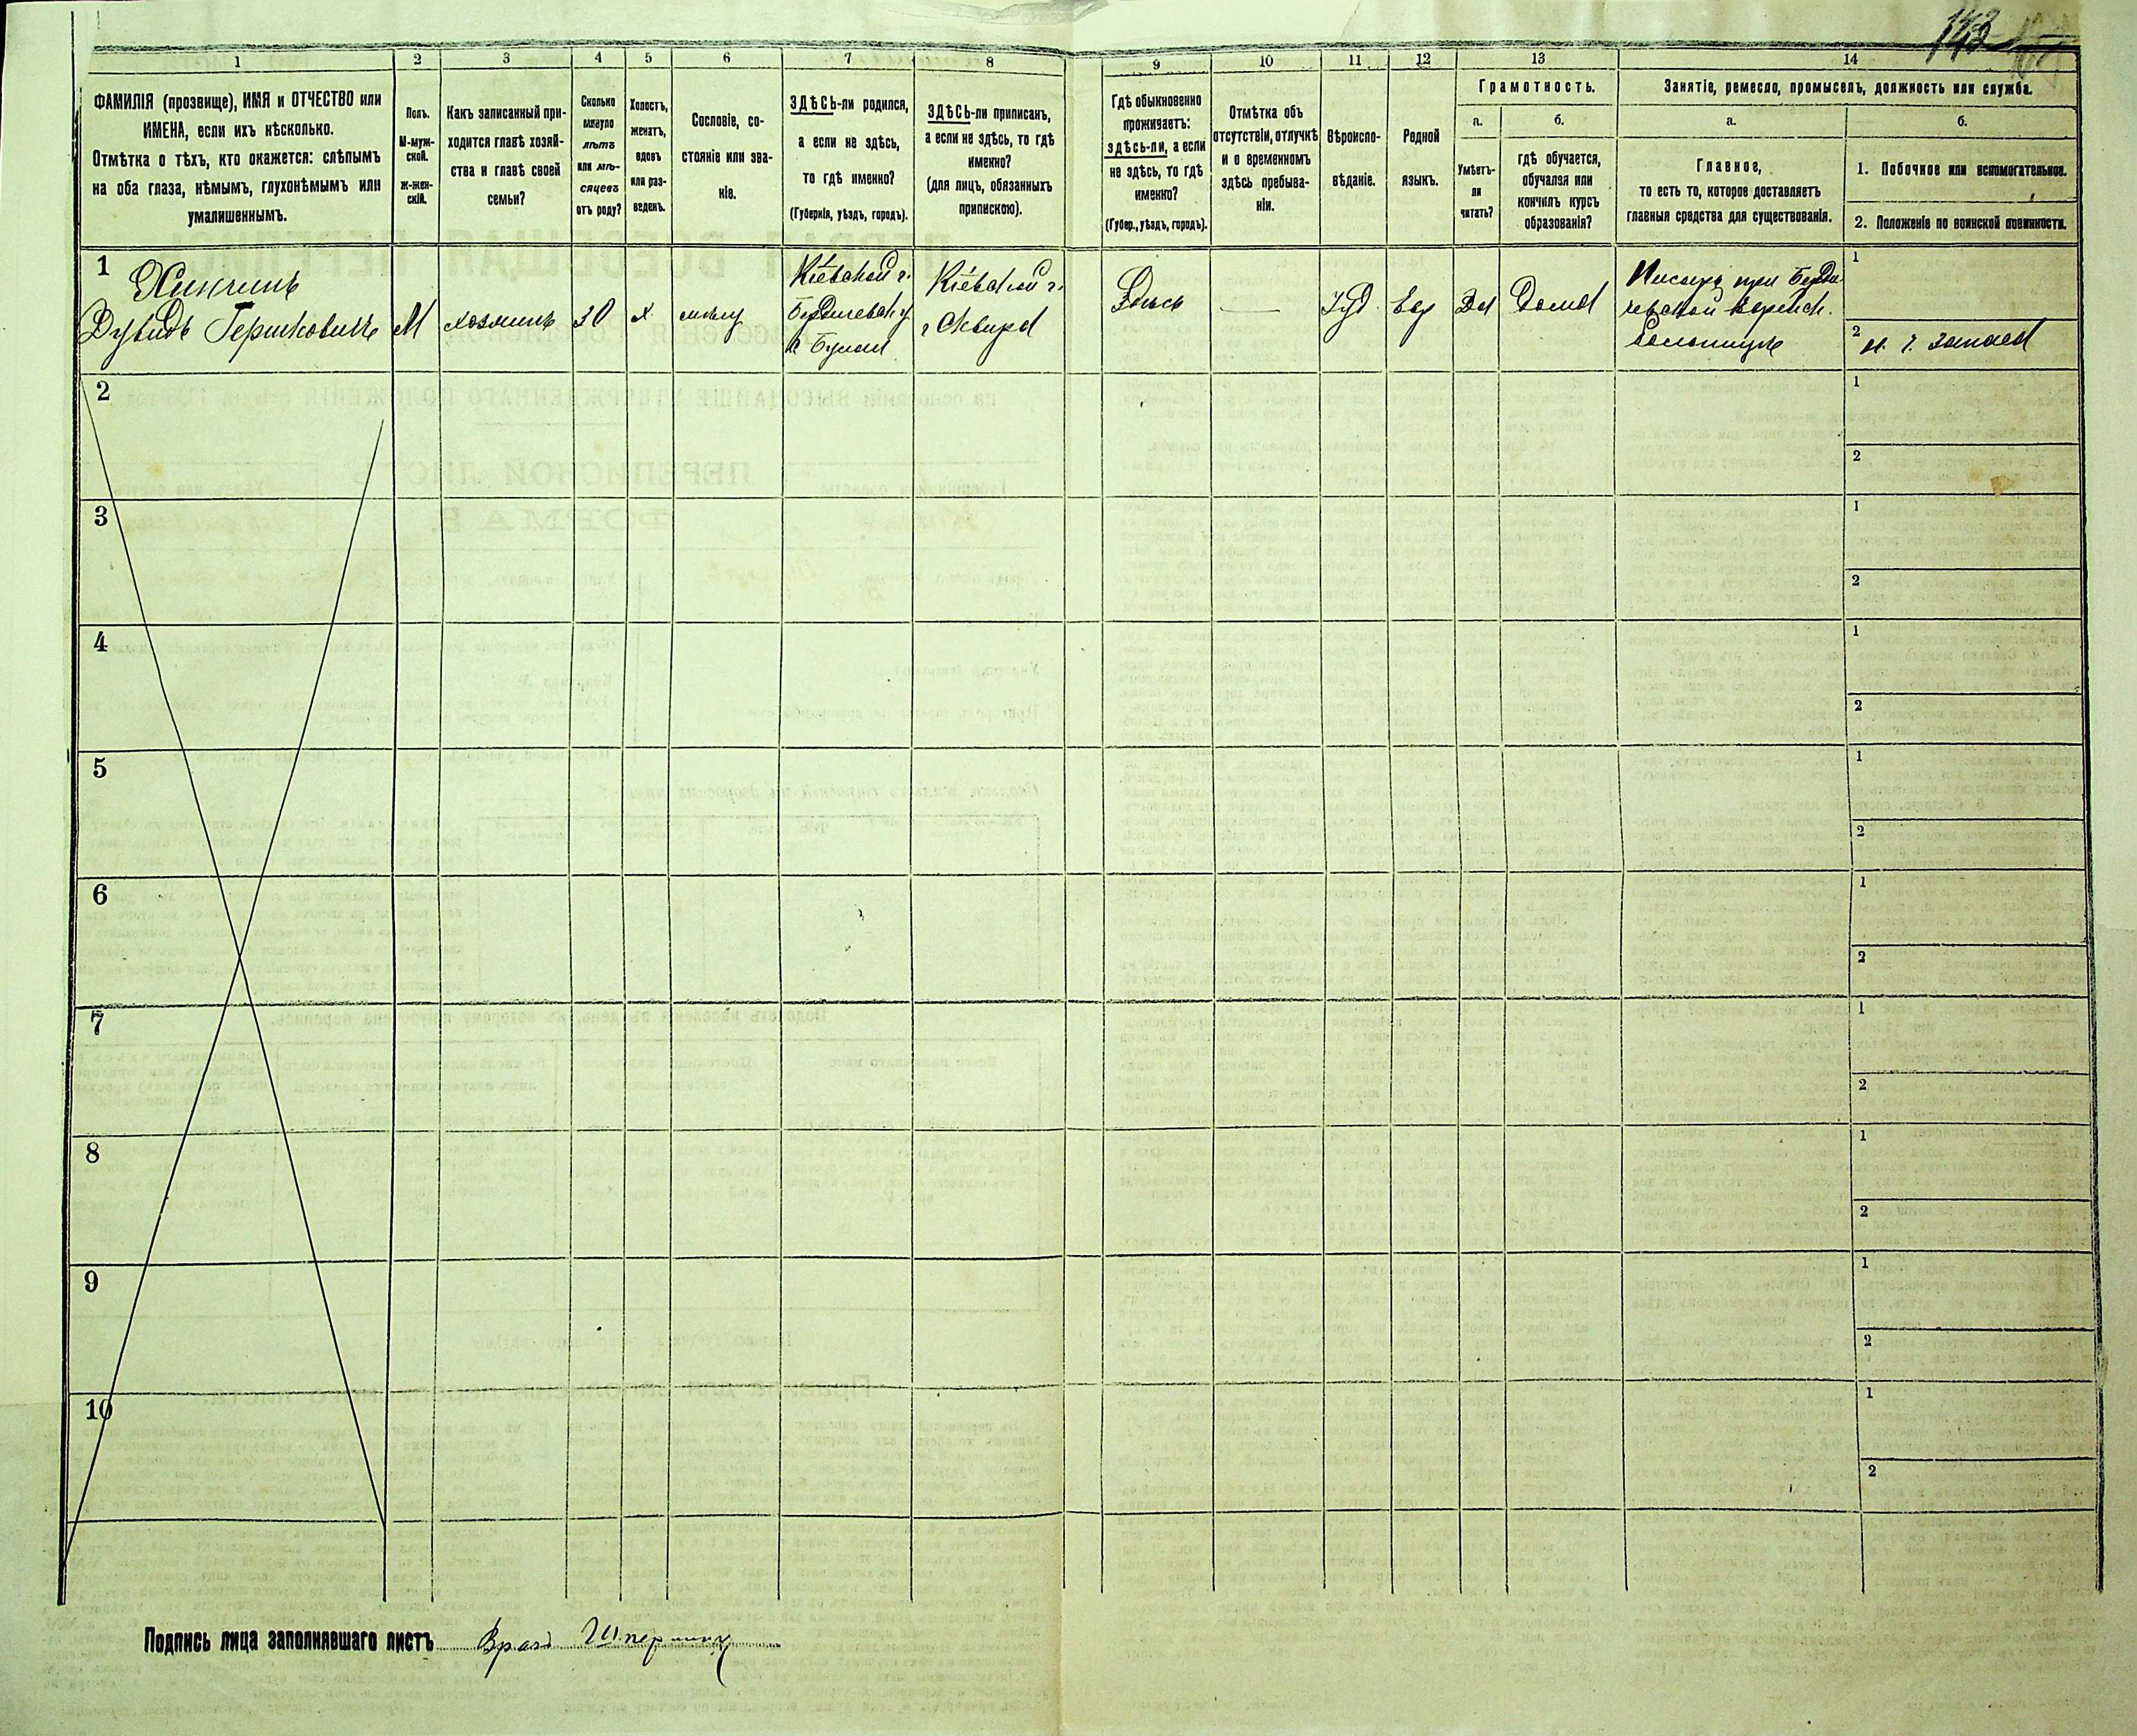 143
1
2
3
4
5
6
7
8
9
10
11
12
13
14
ФАМИЛІЯ (прозвище), ИМЯ и ОТЧЕСТВО или
ИМЕНА, если ихъ нѣсколько.
Отмѣтка о тѣхъ, кто окажется: слѣпымъ
на оба глаза, нѣмымъ, глухонѣмымъ или
умалишеннымъ.
Полъ.
М-муж-
ской.
Ж-жен-
скій.
Какъ записанный при-
ходится главѣ хозяй-
ства и главѣ своей
семьи?
Сколько
минуло
лѣтъ
или мѣ-
сяцевъ
отъ роду?
Холостъ,
женатъ,
вдовъ
или раз-
веденъ.
Сословіе, со-
стояніе или зва-
ніе.
ЗДѢСЬ-ли родился,
а если не здѣсь,
то гдѣ именно?
(Губернія, уѣздъ, городъ).
ЗДѢСЬ-ли приписанъ,
а если не здѣсь, то гдѣ
именно?
(для лицъ, обязанныхъ
припискою).
Гдѣ обыкновенно
проживаетъ:
здѣсь-ли, а если
не здѣсь, то гдѣ
именно?
(Губер., уѣздъ, городъ).
Отмѣтка объ
отсутствіи, отлучкѣ
и о временномъ
здѣсь пребыва-
ніи.
Вѣроиспо-
вѣданіе.
Родной
языкъ.
Грамотность.
а.
Умѣетъ-
ли
читать?
б.
гдѣ обучается,
обучался или
кончилъ курсъ
образованія?
Занятіе, ремесло, промыселъ, должность или служба.
а.
Главное,
то есть то, которое доставляетъ
главныя средства для существованія.
б.
1. Побочное или вспомогательное.
2. Положеніе по воинской повинности.
1
Хинчинъ
Дувидъ Гершковичъ
М
хозяинъ
30
х
мѣщ
Кіевской г.
Бердичевск у
Кіевской г.
г Сквира
Здѣсь
Іуд.
Евр
Да
Дома
Писарь при Берди-
чевской еврейск.
больницѣ
1
2
2
1
2
3
1
2
4
1
2
5
1
2
6
1
2
7
1
2
8
1
2
9
1
2
10
1
2
Подпись лица заполнявшаго листъ Врачъ